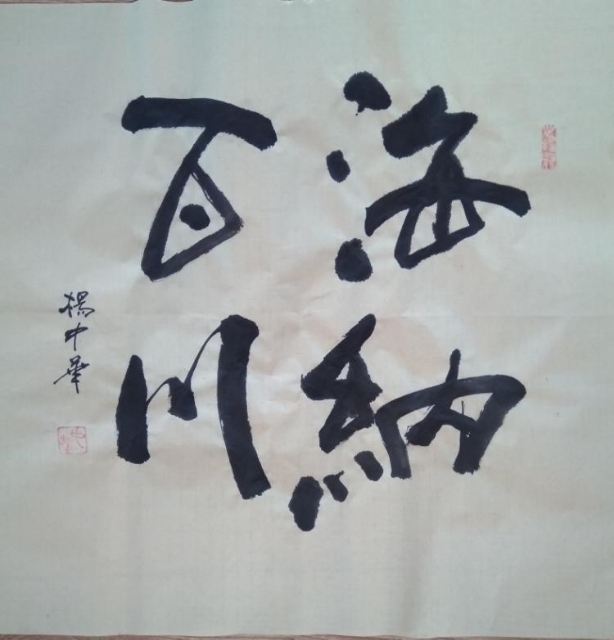 海納
百川
楊中華